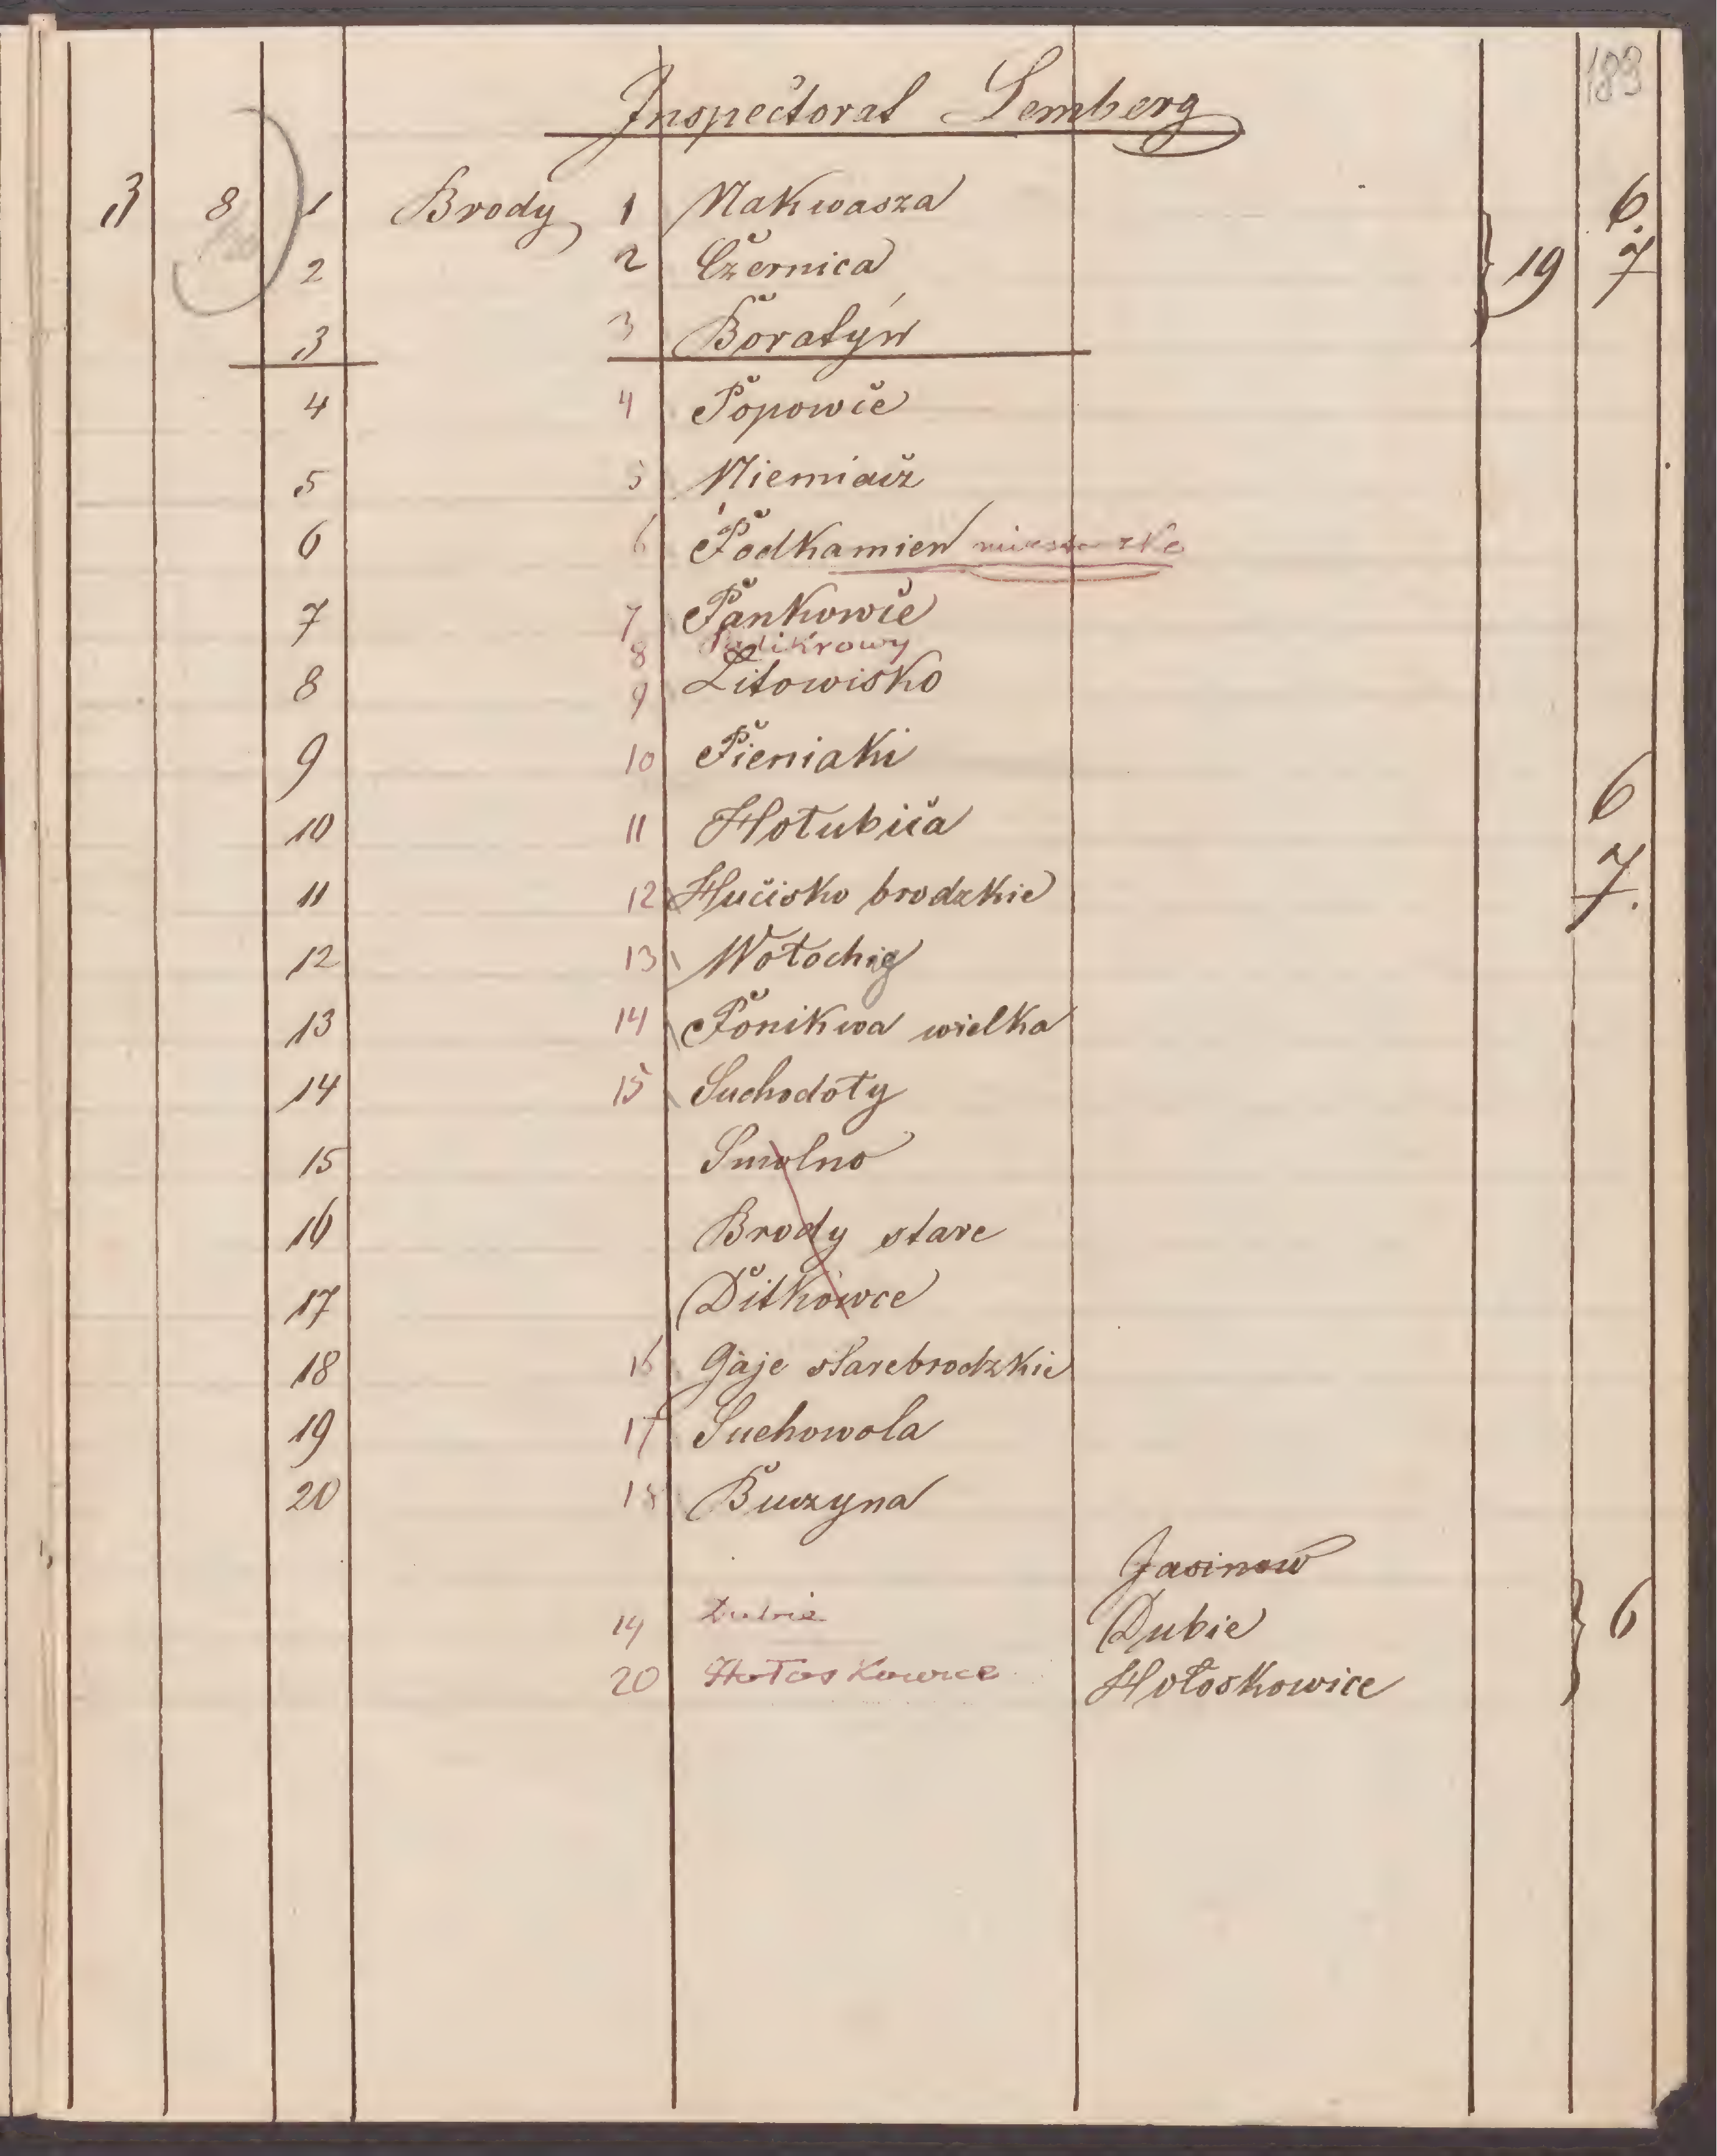 183
Inspectorat Lemberg
3 8 1 Brody 1 Nakwasza 6.
2 2 Czernica 19 7
3 3 Boratyń
4 4 Popowce
5 5 Niemiacz
6 6 Podkamień miasteczko
7 7 Pańkowce
8 Palikrowy
8 9 Litowisko
9 10 Pieniaki
10 11 Hołubica 6
11 12 Hucisko brodzkie 7.
12 13 Wołochy
13 14 Ponikwa wielka
14 15 Suchodoły
15 Smolno
16 Brody stare
17 Ditkowce
18 16 Gaje starebrodzkie
19 17 Suchowola
20 18 Buczyna
Jasinow
19 Dubie Dubie 6
20 Hołoskowice Hołoskowice